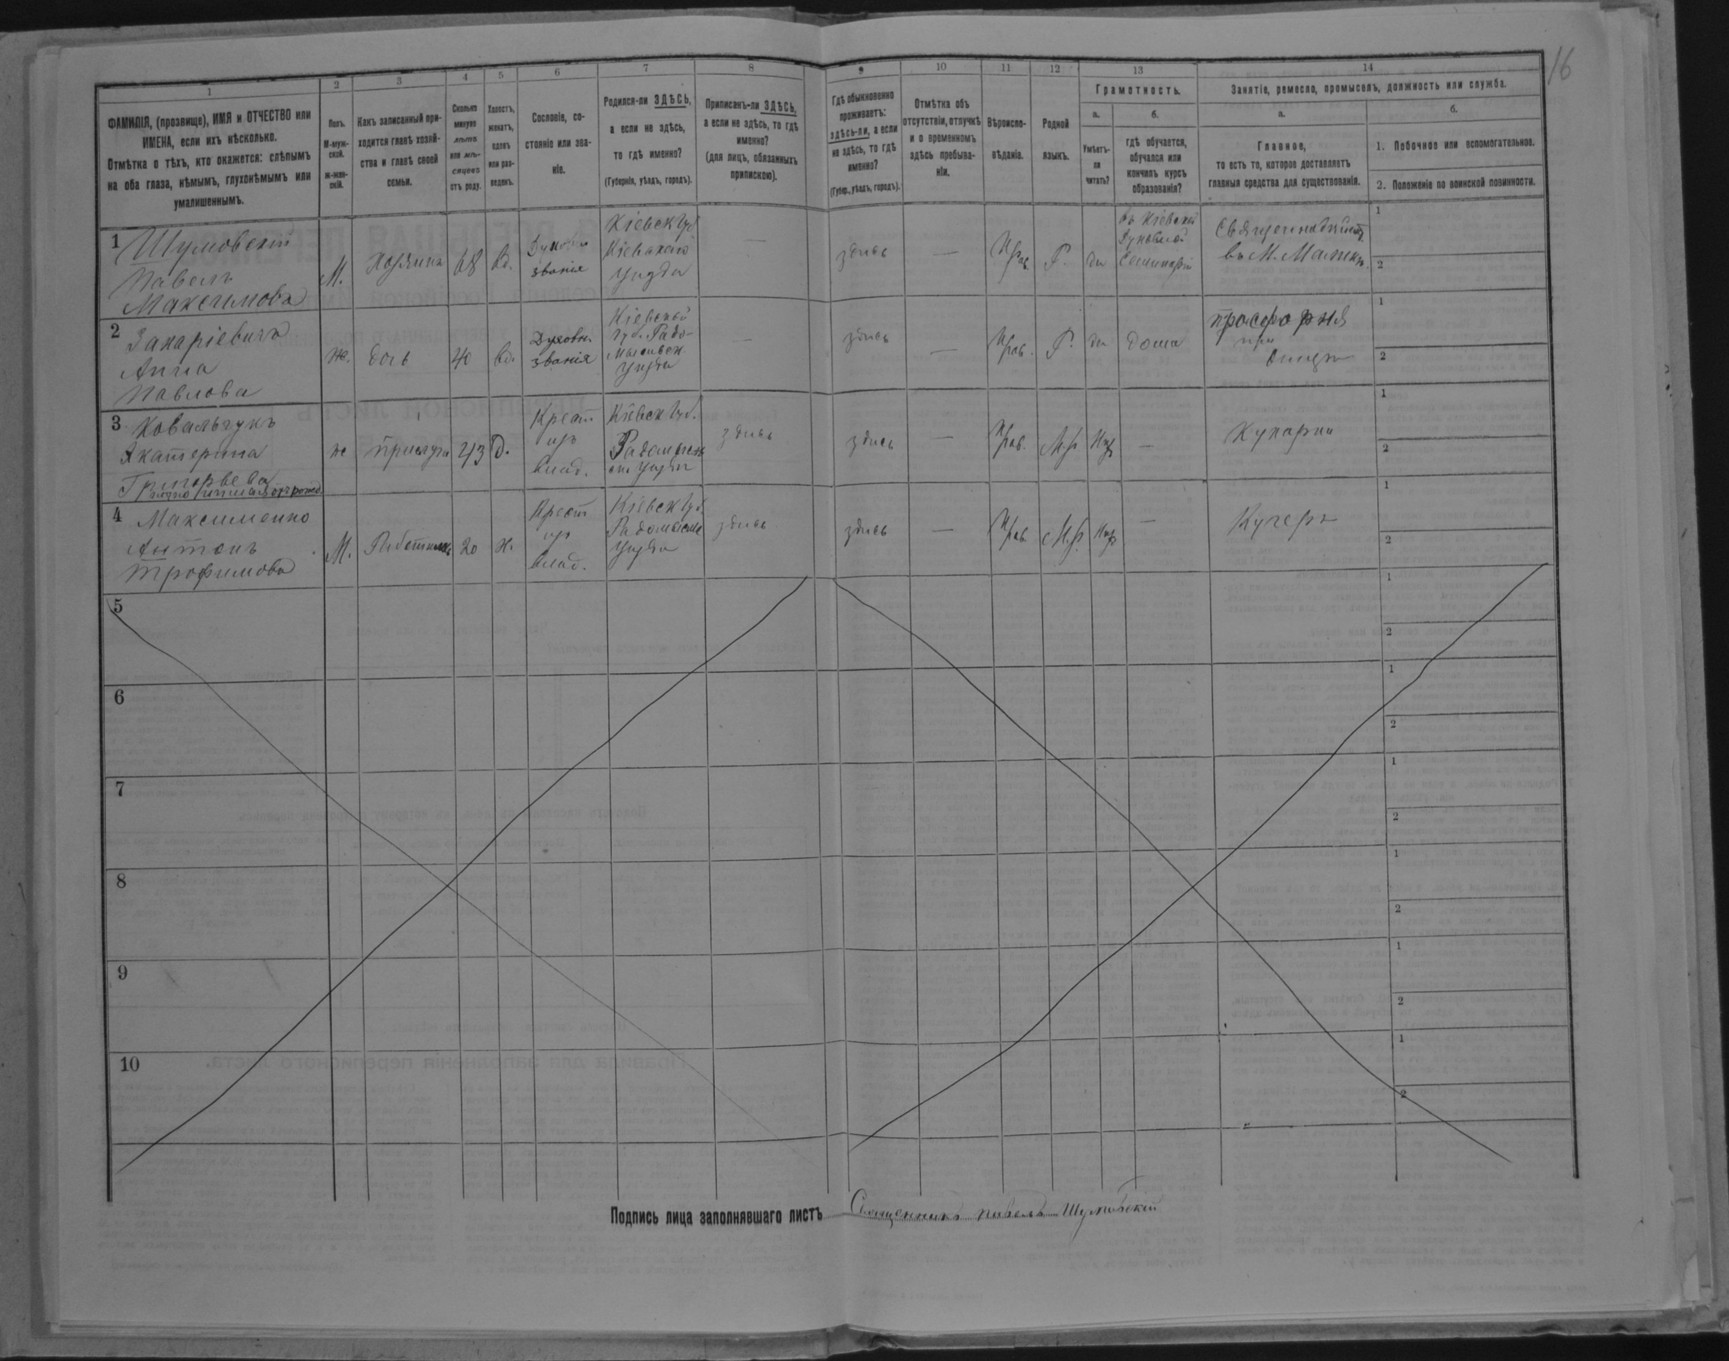 16
1
2
3
4
5
6
7
8
9
10
11
12
13
14
ФАМИЛІЯ, (прозвище), ИМЯ и ОТЧЕСТВО или
ИМЕНА, если ихъ нѣсколько.
Отмѣтка о тѣхъ, кто окажется: слѣпымъ
на оба глаза, нѣмымъ, глухонѣмымъ или
умалишеннымъ.
Полъ.
М-муж-
ской.
Ж-жен-
скій.
Какъ записанный при-
ходится главѣ хозяй-
ства и главѣ своей
семьи.
Сколько
минуло
лѣтъ
или мѣ-
сяцевъ
отъ роду.
Холостъ,
женатъ,
вдовъ
или раз-
веденъ.
Сословіе, со-
стояніе или зва-
ніе.
Родился-ли ЗДѢСЬ,
а если не здѣсь,
то гдѣ именно?
(Губернія, уѣздъ, городъ).
Приписанъ-ли ЗДѢСЬ,
а если не здѣсь, то гдѣ
именно?
(для лицъ, обязанныхъ
припискою).
Гдѣ обыкновенно
проживаетъ:
здѣсь-ли, а если
не здѣсь, то гдѣ
именно?
(Губер., уѣздъ, городъ).
Отмѣтка объ
отсутствіи, отлучкѣ
и о временномъ
здѣсь пребыва-
ніи.
Вѣроиспо-
вѣданіе.
Родной
языкъ.
Грамотность.
а.
Умѣетъ-
ли
читать?
б.
гдѣ обучается,
обучался или
кончилъ курсъ
образованія?
Занятіе, ремесло, промыселъ, должность или служба.
а.
Главное,
то есть то, которое доставляетъ
главныя средства для существованія.
б.
1. Побочное или вспомогательное.
2. Положеніе по воинской повинности.
1
Шумовскій
Павелъ
Максимовъ
М.
Хозяинъ
68
Вд.
Духовн.
званія
Кіевск Губ
Кіевскаго
уѣзда
—
здѣсь
—
Прав.
Р.
да
въ Кіевской
Духовной
Семинаріи
Священнодѣйст.
1
2
2
Захаріевичъ
Анна
Павлова
ж.
дочь
40
вд.
Духовн.
званія
Кіевской
губ. Радо-
мысльск.
уѣзда
—
здѣсь
—
Прав.
Р.
да
дома
просфорня
при
1
2
3
Ковальчукъ
Екатерина
Григорьева
ж
прислуга
43
Д.
Крест
изъ
влад.
Кіевск Губ.
здѣсь
здѣсь
—
Прав.
Мр
Нѣт
—
Кухарка
1
2
4
Максименко
Антонъ
Трофимовъ
М.
Работникъ
20
Х.
Крест
изъ
влад.
Кіевск Губ.
Радомысль
уѣзда
здѣсь
здѣсь
—
Прав
Мр.
Нѣт
—
Кучеръ
1
2
5
1
2
6
1
2
7
1
2
8
1
2
9
1
2
10
1
2
Подпись лица заполнявшаго листъ Священникъ Павелъ Шумовскій